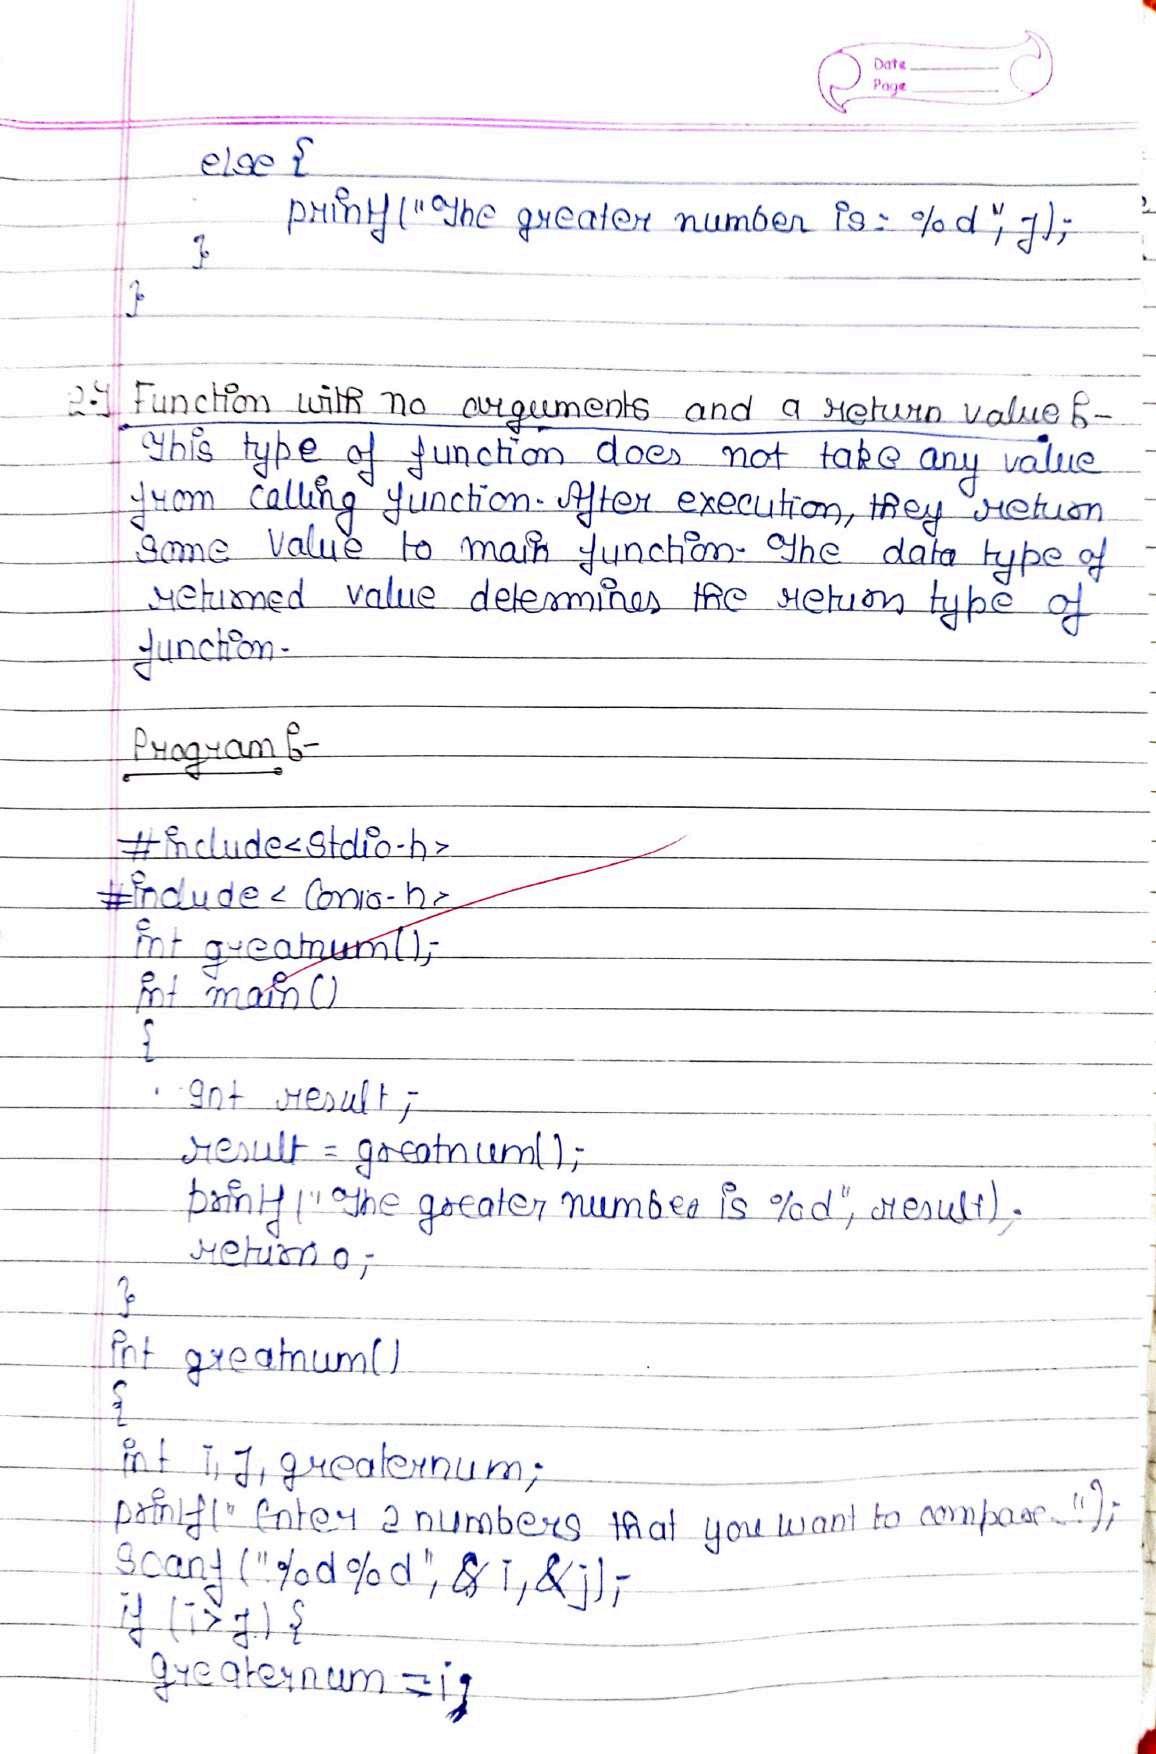 Date
Page
else {
printf("The greater number is: %d", j);
}
}
2.) Function with no arguments and a return value :-
This type of function does not take any value
from calling function. After execution, they return
some value to main function. The data type of
returned value determines the return type of
function.
Program :-
#include<stdio.h>
#include< Conio.h>
int greatnum();
int main()
{
int result;
result = greatnum();
printf("The greater number is %d", result);
return 0;
}
int greatnum()
{
int i, j, greaternum;
printf(" Enter 2 numbers that you want to compare..");
scanf ("%d%d", &i, &j);
if (i>j) {
greaternum = i;